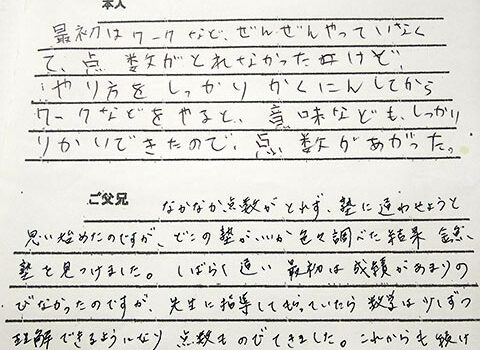 本人
最初はワークなど、ぜんぜんやっていなく
て、点数がとれなかったけど、
やり方をしっかりかくにんしてから
ワークなどをやると、意味なども、しっかり
りかいできたので、点数があがった。
ご父兄
なかなか点数がとれず、塾に通わせようと
思い始めたのですが、どこの塾がいいか色々調べた結果
塾を見つけました。しばらく通い 最初は成績があまりの
びなかったのですが、先生に指導してもらっていたら数学は少しずつ
理解できるようになり 点数ものびてきました。これからも続け